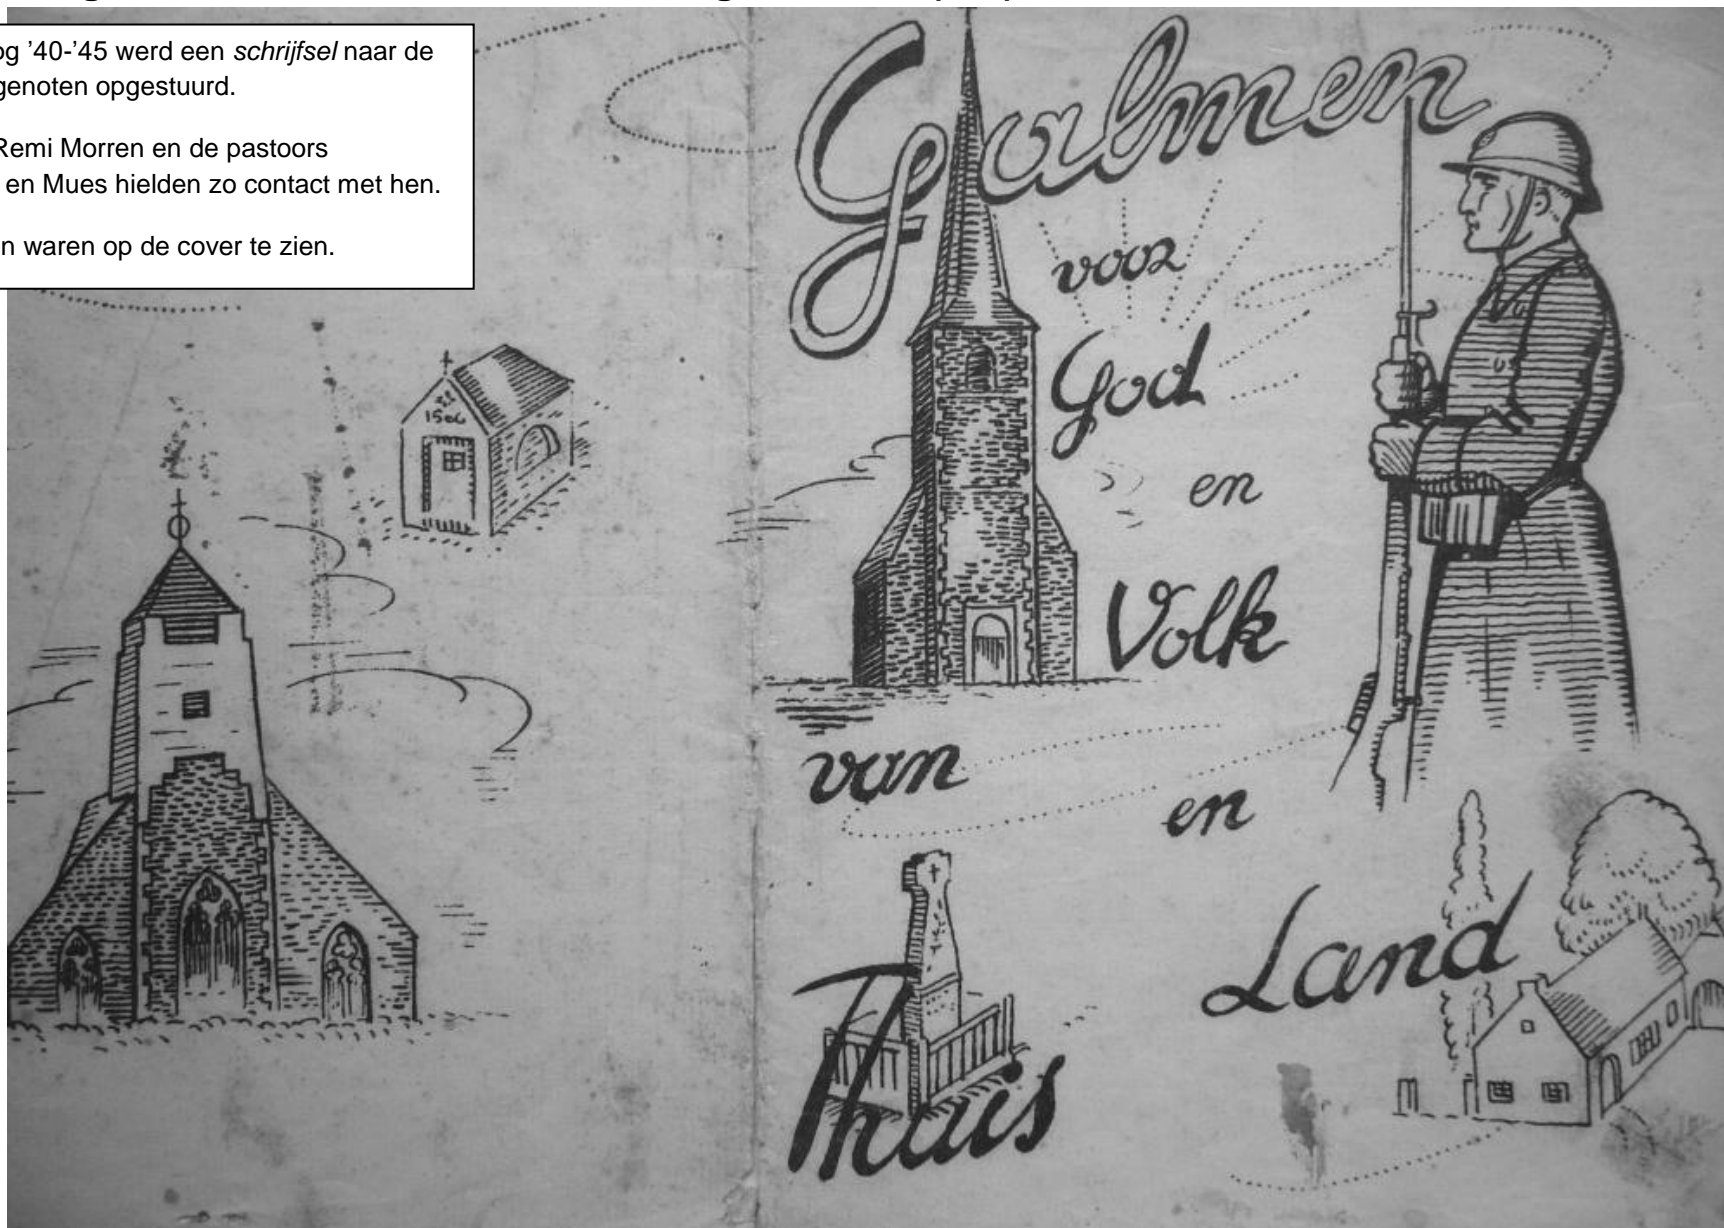 og ’40-’45 werd een schrijfsel naar de
genoten opgestuurd.
Remi Morren en de pastoors
en Mues hielden zo contact met hen.
n waren op de cover te zien.
Galmen
voor
God
en
Volk
van
en
Thuis
Land
1506